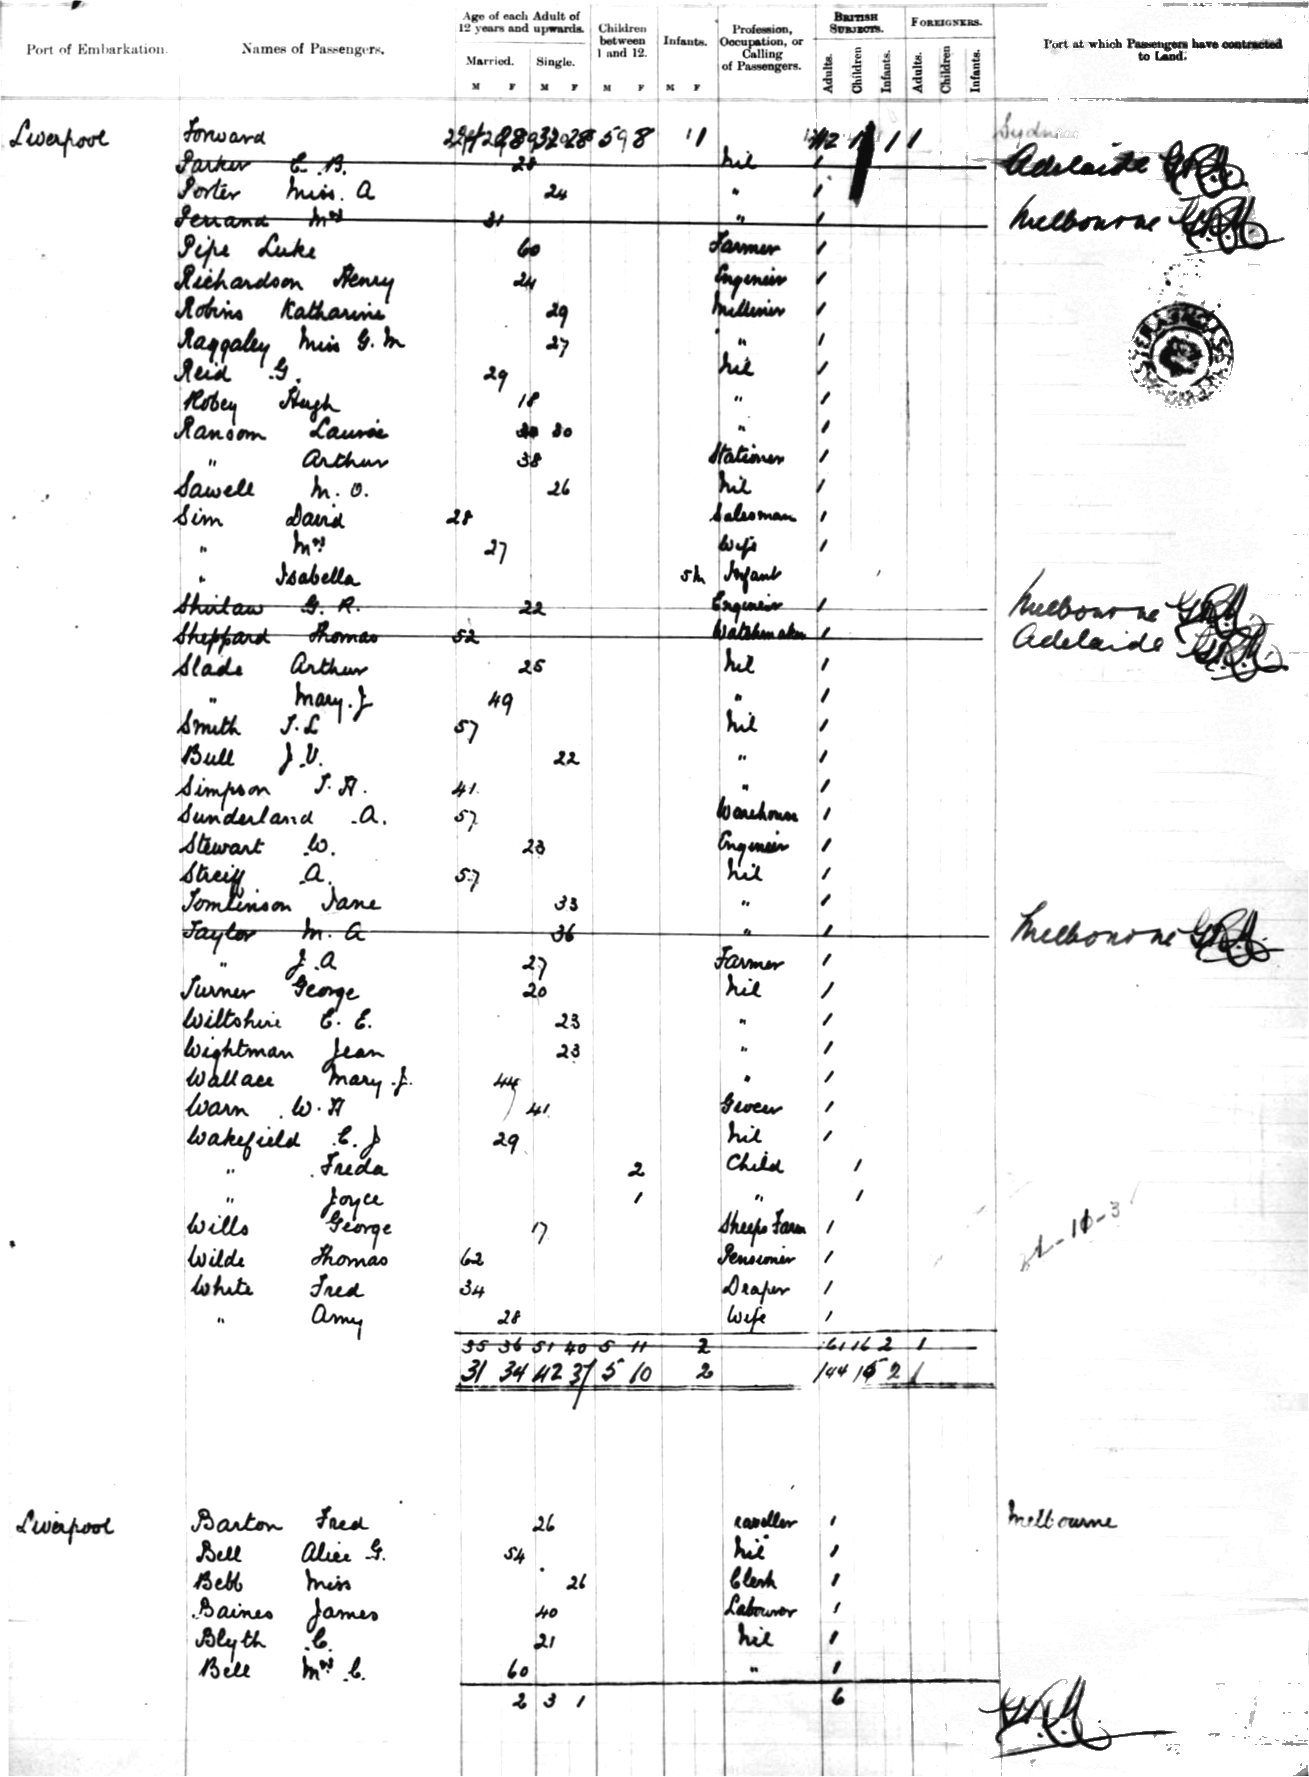 Port of Embarkation. Names of Passengers. Age of each Adult of 12 years and upwards. Children between 1 and 12. Infants. Profession, Occupation, or Calling of Passengers. BRITISH SUBJECTS. FOREIGNERS. Port at which Passengers have contracted to Land.
Married. Single.
M F M F M F M F Adults. Children Infants. Adults. Children Infants.
Liverpool Forward 1 1 1 Sydney
Parker C. B. 28 Nil 1 Adelaide
Porter Miss. A 24 " 1
Perrand Mrs 31 " 1 Melbourne
Pipe Luke 60 Farmer 1
Richardson Henry 24 Engineer 1
Robins Katharine 29 Milliner 1
Raggaley Miss G. M 27 " 1
Reid G. 29 Nil 1
Robey Hugh 18 " 1
Ransom Laurie 30 " 1
" Arthur 38 Stationer 1
Sawell M. O. 26 Nil 1
Sim David 28 Salesman 1
" Mrs 27 Wife 1
" Isabella 5m Infant
Shirlaw G. R. 22 Engineer 1 Melbourne
Sheppard Thomas 52 Watchmaker 1 Adelaide
Slade Arthur 25 Nil 1
" Mary. J 49 " 1
Smith T. L 57 Nil 1
Bull J. V. 22 " 1
Simpson T. H. 41 " 1
Sunderland A. 57 Warehouse 1
Stewart W. 23 Engineer 1
Streiff A. 57 Nil 1
Tomlinson Jane 33 " 1
Taylor M. A 36 " 1 Melbourne
" J. A 27 Farmer 1
Turner George 20 Nil 1
Wiltshire E. E. 23 " 1
Wightman Jean 23 " 1
Wallace Mary. J. 44 " 1
Warn W. H 41 Grocer 1
Wakefield C. J 29 Nil 1
" Freda 2 Child 1
" Joyce 1 " 1
Wills George 17 Sheep Farm 1
Wilde Thomas 62 Pensioner 1
White Fred 34 Draper 1
" Amy 28 Wife 1
35 36 51 40 5 11 2 161 16 2 1
31 34 42 37 5 10 2 144 15 2 1
Liverpool Barton Fred 26 1 Melbourne
Bell Alice G. 54 Nil 1
Bebb Miss 26 Clerk 1
Baines James 40 Labourer 1
Blyth C. 21 Nil 1
Bell Mrs C. 60 " 1
2 3 1 6